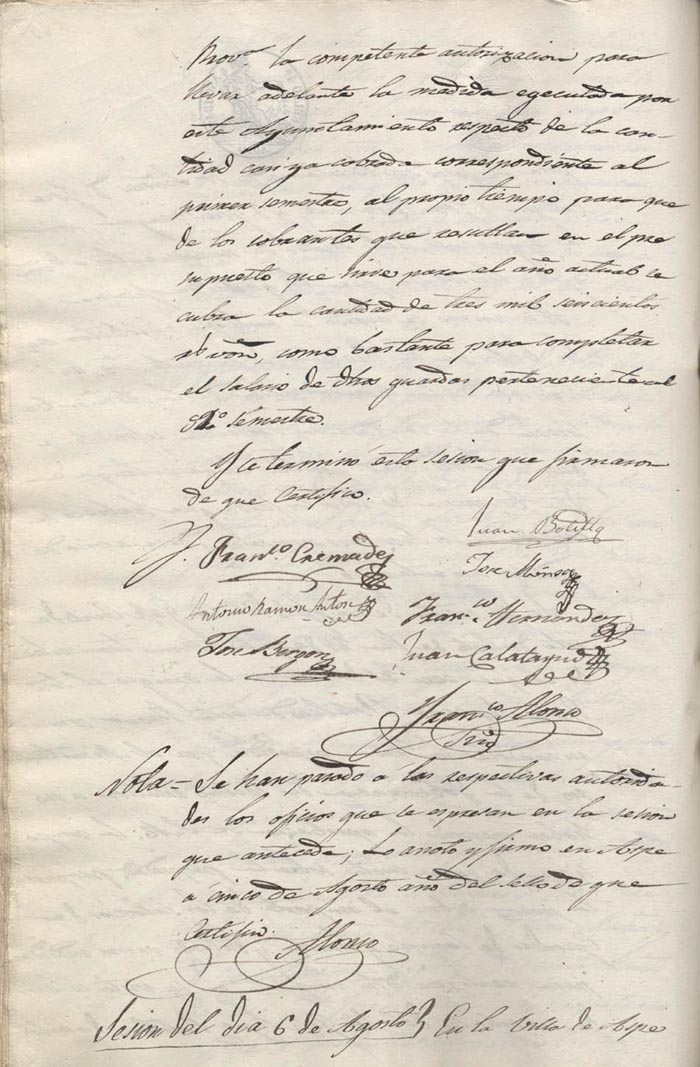 Provª la competente autorizacion para
llevar adelante la medida egecutada por
este Ayuntamiento respecto de la can-
tidad ya cobrada correspondiente al
primer semestre, al propio tiempo para que
de los sobrantes que resultan en el pre
supuesto que sirve para el año actual se
cubra la cantidad de tres mil seiscientos
rˢ vón, como bastante para completar
el salario de dhos guardas perteneciente al
2º semestre.
Y se terminó esta sesion que firmaron
de que Certifico.
Juan Botella
Franᶜᵒ Cremades
Jose
Antonio Ramon Anton
Franᶜᵒ Hernandez
Jose
Juan Calatayud
Franᶜᵒ Alonso
Srio
Nota - Se han pasado a las respectivas autorida-
des los oficios que se espresan en la sesion
que antecede; Lo anoto y firmo en Aspe
a cinco de Agosto año del sello de que
Certifico.
Alonso
Sesion del dia 6 de Agosto} En la Villa de Aspe